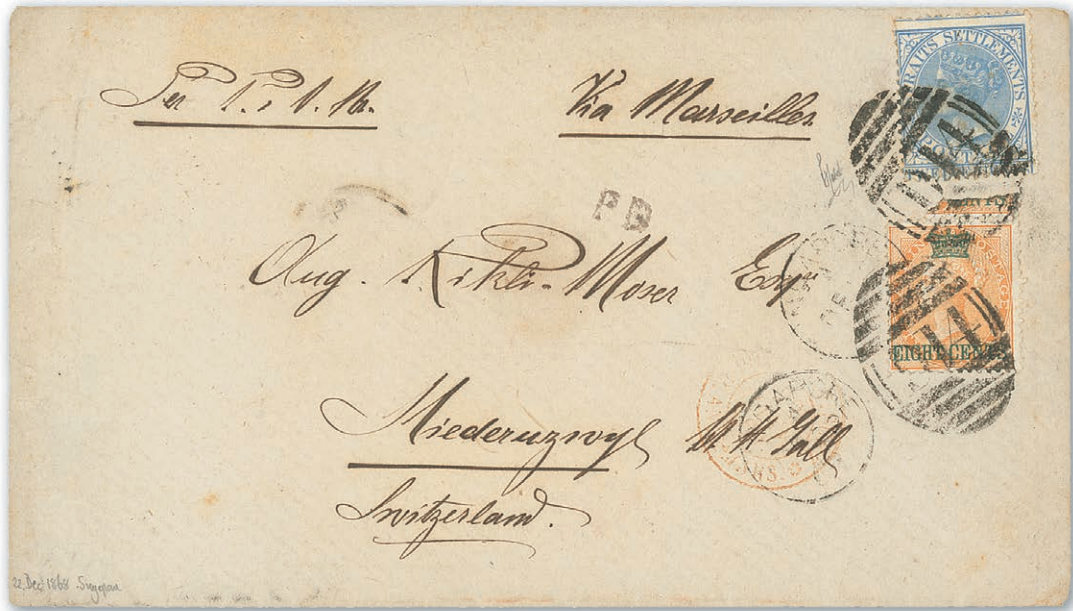 Per P. & O. Str. Via Marseilles
STRAITS SETTLEMENTS
P D
Aug. Rikli-Moser Esqre
EIGHT CENTS
Niederuzwyl Ct. St. Gall
Switzerland.
22 Dec 1868